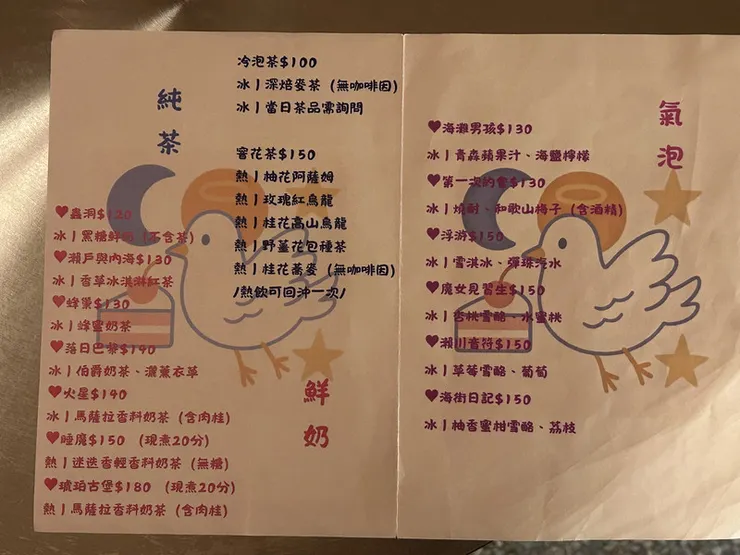 純茶
冷泡茶$100
冰｜深焙麥茶（無咖啡因）
冰｜當日茶品需詢問
窨花茶$150
熱｜柚花阿薩姆
熱｜玫瑰紅烏龍
熱｜桂花高山烏龍
熱｜野薑花包種茶
熱｜桂花蕎麥（無咖啡因）
/熱飲可回沖一次/
鮮奶
♥蟲洞$120
冰｜黑糖鮮奶（不含茶）
♥瀨戶與內海$130
冰｜香草冰淇淋紅茶
♥蜂巢$130
冰｜蜂蜜奶茶
♥落日巴黎$140
冰｜伯爵奶茶、濃薰衣草
♥火星$140
冰｜馬薩拉香料奶茶（含肉桂）
♥睡魔$150（現煮20分）
熱｜迷迭香輕香料奶茶（無糖）
♥琥珀古堡$180（現煮20分）
熱｜馬薩拉香料奶茶（含肉桂）
氣泡
♥海灘男孩$130
冰｜青森蘋果汁、海鹽檸檬
♥第一次約會$130
冰｜燒酎、和歌山梅子（含酒精）
♥浮游$150
冰｜雪淇冰、彈珠汽水
♥魔女見習生$150
冰｜杏桃雪酪、水蜜桃
♥瀨川音符$150
冰｜草莓雪酪、葡萄
♥海街日記$150
冰｜柚香蜜柑雪酪、荔枝